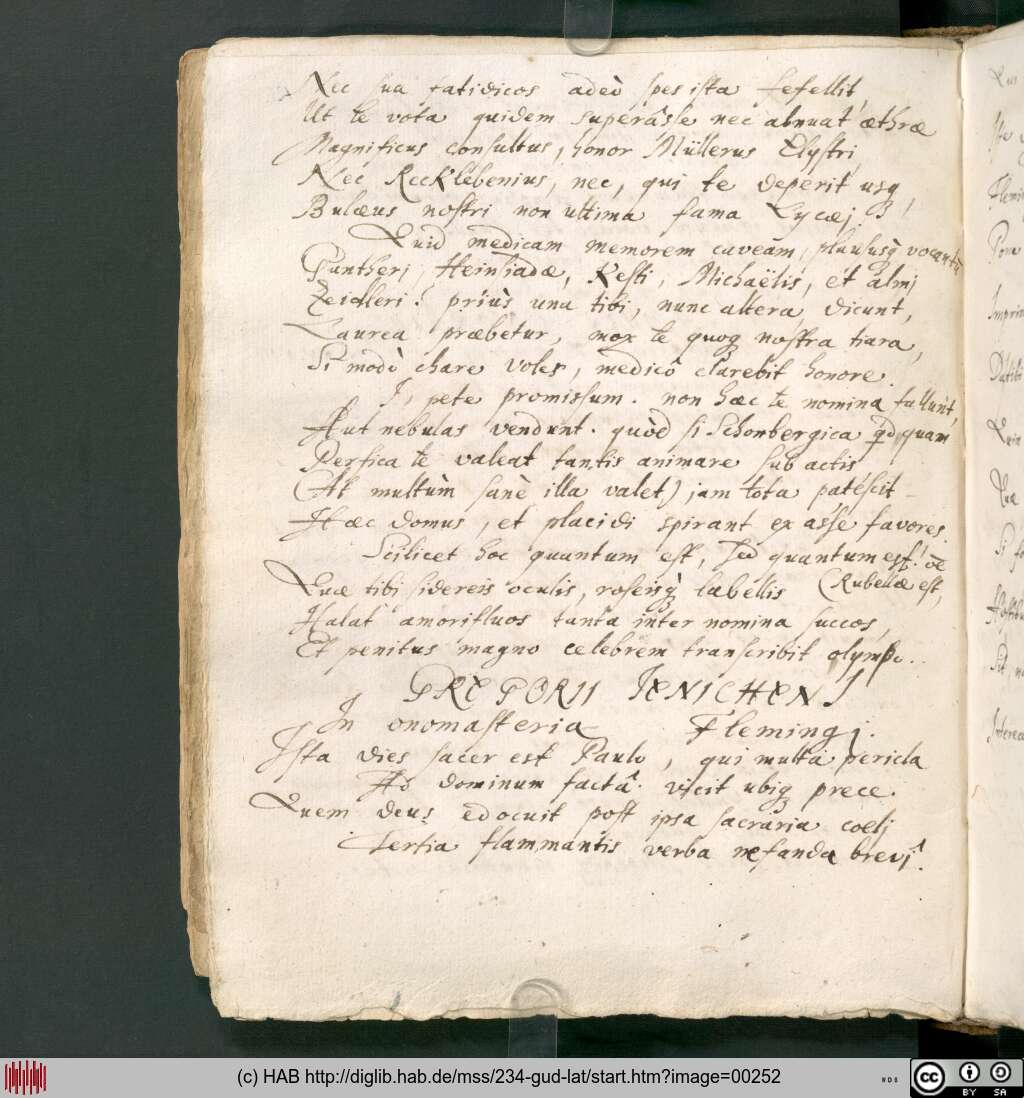 Nec sua fatidicos adeò spes ista fefellit
Ut te vota quidem superâsse nec abnuat æthræ
Magnificus consultus, honor Müllerus Elystri,
Nec Recklebenius, nec, qui te deperit usq,
Bulæus nostri non ultima fama Lycæj
Quid medicam memorem caveam, plaususq vocantũ
Pantheri, Heinsiadæ, Kesti, Michaëlis, et almj
Zeidleri! priùs una tibi, nunc altera, dicunt,
Laurea præbetur, mox te quoq nostra tiara,
Si modò chare voles, medicô clarebit honore.
I, pete promissum. non hæc te nomina fallunt,
Aut nebulas vendunt. quòd si Schonbergica quam
Persica te valeat tantis animare sub actis
(At multùm sanè illa valet) jam tota patescit
Hæc domus, et placidi spirant ex asse favores.
Scilicet hoc quantum est, sed quantum est!
Quæ tibi sidereis oculis, roseisq labellis (Rubellæ est,
Halat amorifluos tanta inter nomina succos,
Et penitus magno celebrem transcribit olympo.
GREGORII IENICHEN I
In onomasteria Flemingj.
Ista dies sacer est Paulo, qui multa pericla
Ad dominum factâ vicit ubiq prece.
Quem deus edocuit post ipsa sacraria coelj
Tertia flammantis verba nefanda brevi.
(c) HAB http://diglib.hab.de/mss/234-gud-lat/start.htm?image=00252
cc BY SA